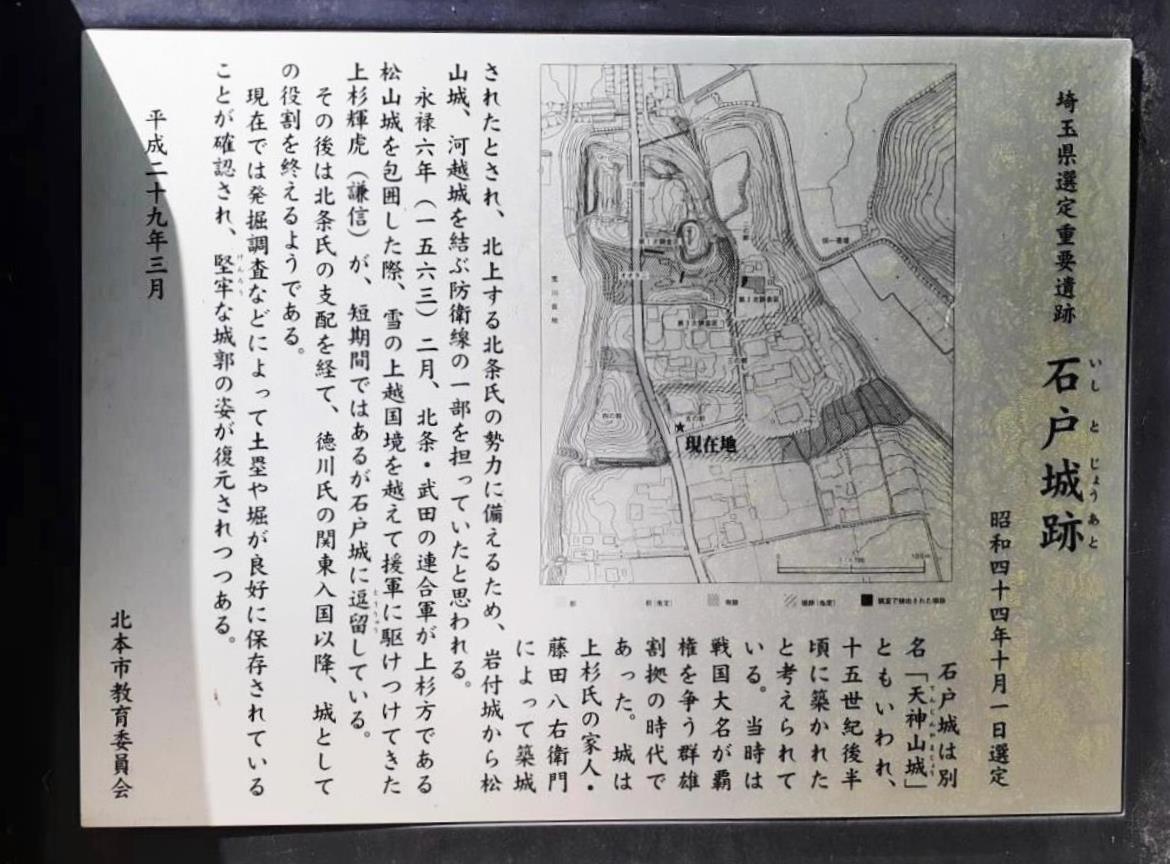 埼玉県選定重要遺跡
いしとじょうあと
石戸城跡
昭和四十四年十月一日選定
石戸城は別
名「天神山城」
てんじんやまじょう
ともいわれ、
十五世紀後半
頃に築かれた
と考えられて
いる。当時は
戦国大名が覇
権を争う群雄
割拠の時代で
あった。城は
上杉氏の家人・
藤田八右衛門
によって築城
されたとされ、北上する北条氏の勢力に備えるため、岩付城から松
山城、河越城を結ぶ防衛線の一部を担っていたと思われる。
永禄六年（一五六三）二月、北条・武田の連合軍が上杉方である
松山城を包囲した際、雪の上越国境を越えて援軍に駆けつけてきた
上杉輝虎（謙信）が、短期間ではあるが石戸城に逗留している。
とうりゅう
その後は北条氏の支配を経て、徳川氏の関東入国以降、城として
の役割を終えるようである。
現在では発掘調査などによって土塁や堀が良好に保存されている
ことが確認され、堅牢な城郭の姿が復元されつつある。
けんろう
平成二十九年三月
北本市教育委員会
一の郭
二の郭
三の郭
四の郭
五の郭
現在地